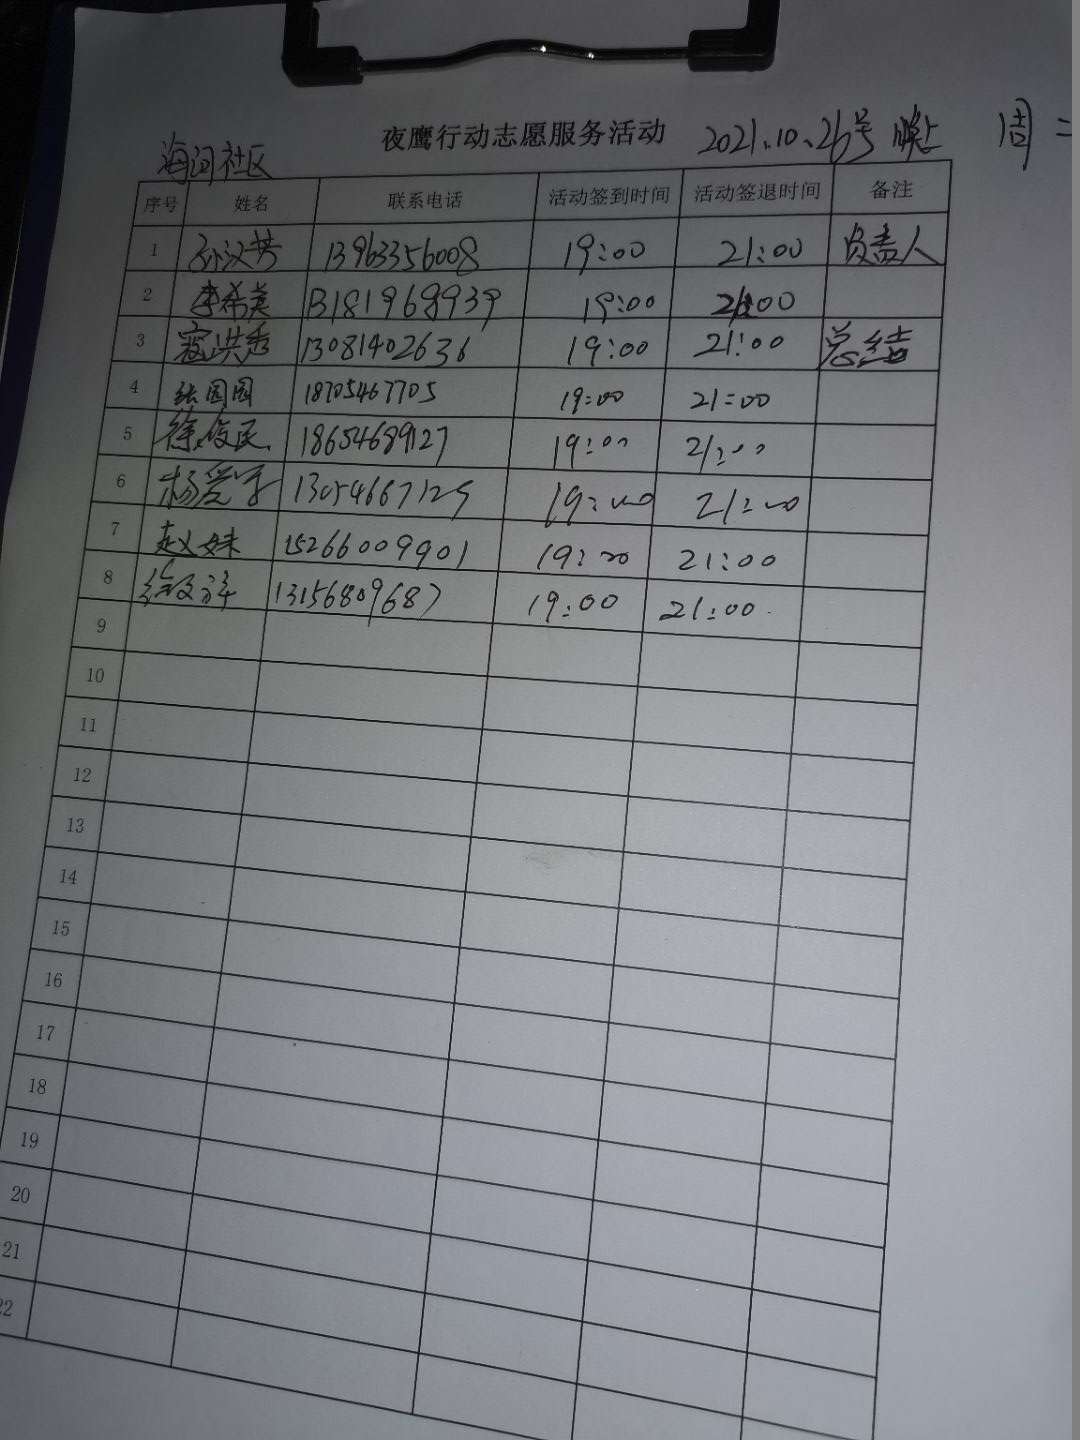 夜鹰行动志愿服务活动 2021.10.26号 晚上 周二
海河社区
序号 姓名 联系电话 活动签到时间 活动签退时间 备注
1 孙汉芳 13963356008 19:00 21:00 负责人
2 李希英 13181968939 19:00 21:00
3 寇洪秀 13081402636 19:00 21:00 总结
4 张园园 18705467705 19:00 21:00
5 徐俊民 18654689127 19:00 21:00
6 杨爱 13054667125 19:00 21:00
7 赵妹 15266009901 19:00 21:00
8 13156809687 19:00 21:00
9
10
11
12
13
14
15
16
17
18
19
20
21
22